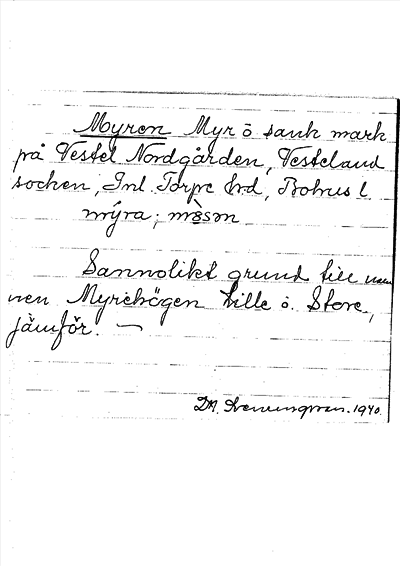 Myren Myr o sank mark
på Vestel Nordgården, Vesteland
socken, Inl. Torpe hrd, Bohus l.
mýra; mòsən
Sannolikt grund till nam
nen Myrehögen Lille o. Store,
jämför. —
DM. 1940.